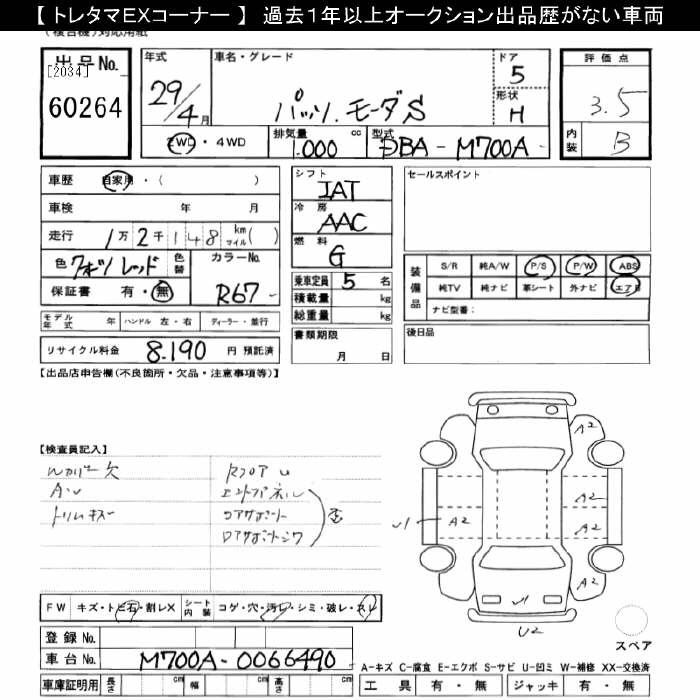 【 トレタマEXコーナー 】 過去1年以上オークション出品歴がない車両
(複合機)対応用紙
出品No.
[2034]
60264
年式
29/4月
車名・グレード
パッソ.モーダS
ドア
5
形状
H
評価点
3.5
内装
B
2WD・4WD
排気量
1.000
cc
型式
DBA-M700A
車歴
自家用・( )
車検 年 月
走行
1万2千148
km
マイル( )
色
色替
カラーNo.
R67
保証書 有・無
シフト
IAT
冷房
AAC
燃料
G
乗車定員 5 名
積載量 kg
総重量 kg
書類期限
月 日
セールスポイント
装備品
S/R 純A/W P/S P/W ABS
純TV 純ナビ 革シート 外ナビ エアB
ナビ型番:
後日品
モデル年式 年 ハンドル 左・右 ディーラー・並行
リサイクル料金 8.190 円 預託済
【出品店申告欄(不良箇所・欠品・注意事項等)】
【検査員記入】
Wカバー欠
AU
トリムキズ
RフロアU
エンドパネル
コアサポート
FW キズ・トビ石・割レX
シート内装 コゲ・穴・汚レ・シミ・破レ・スレ
登録No.
車台No. M700A-0066490
車庫証明用 長さ cm 幅 cm 高さ cm
A2
A2
A2
A2
U1
A2
U1
U2
スペア
A-キズ C-腐食 E-エクボ S-サビ U-凹ミ W-補修 XX-交換済
工具 有・無 ジャッキ 有・無